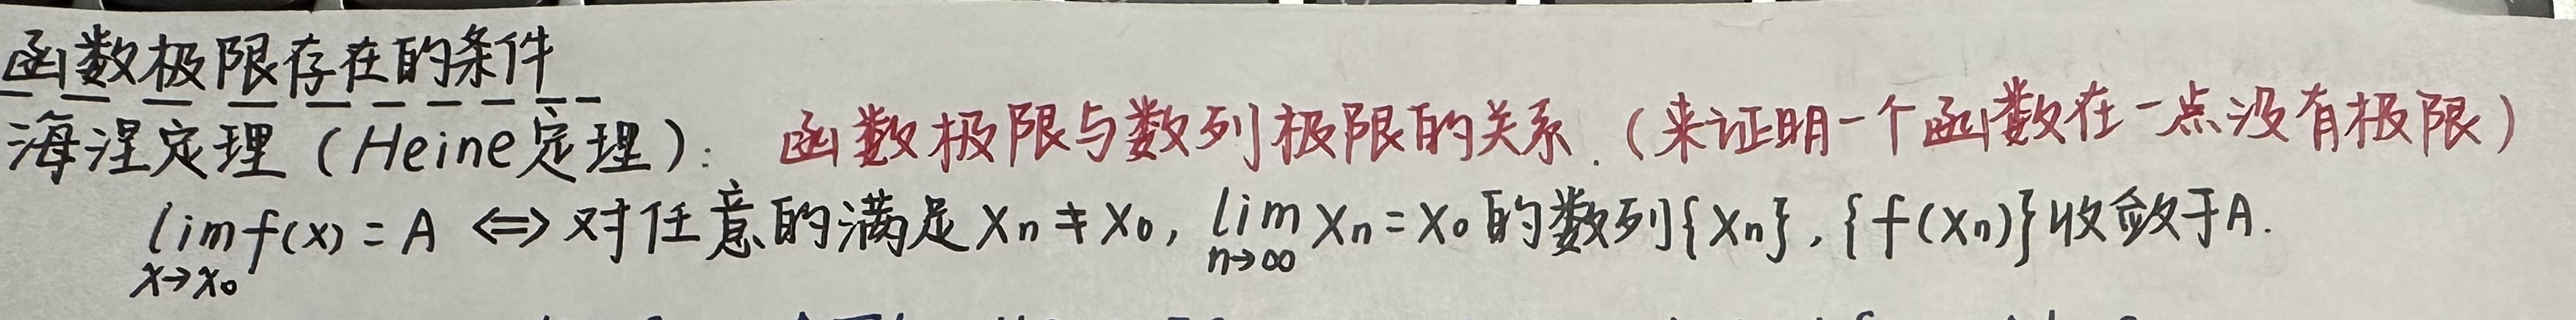 函数极限存在的条件
海涅定理（Heine定理）： 函数极限与数列极限的关系.（来证明一个函数在一点没有极限）
lim f(x) = A ⟺ 对任意的满足 Xn ≠ X0, lim Xn = X0 的数列{Xn}, {f(Xn)}收敛于A.
x→x0 n→∞